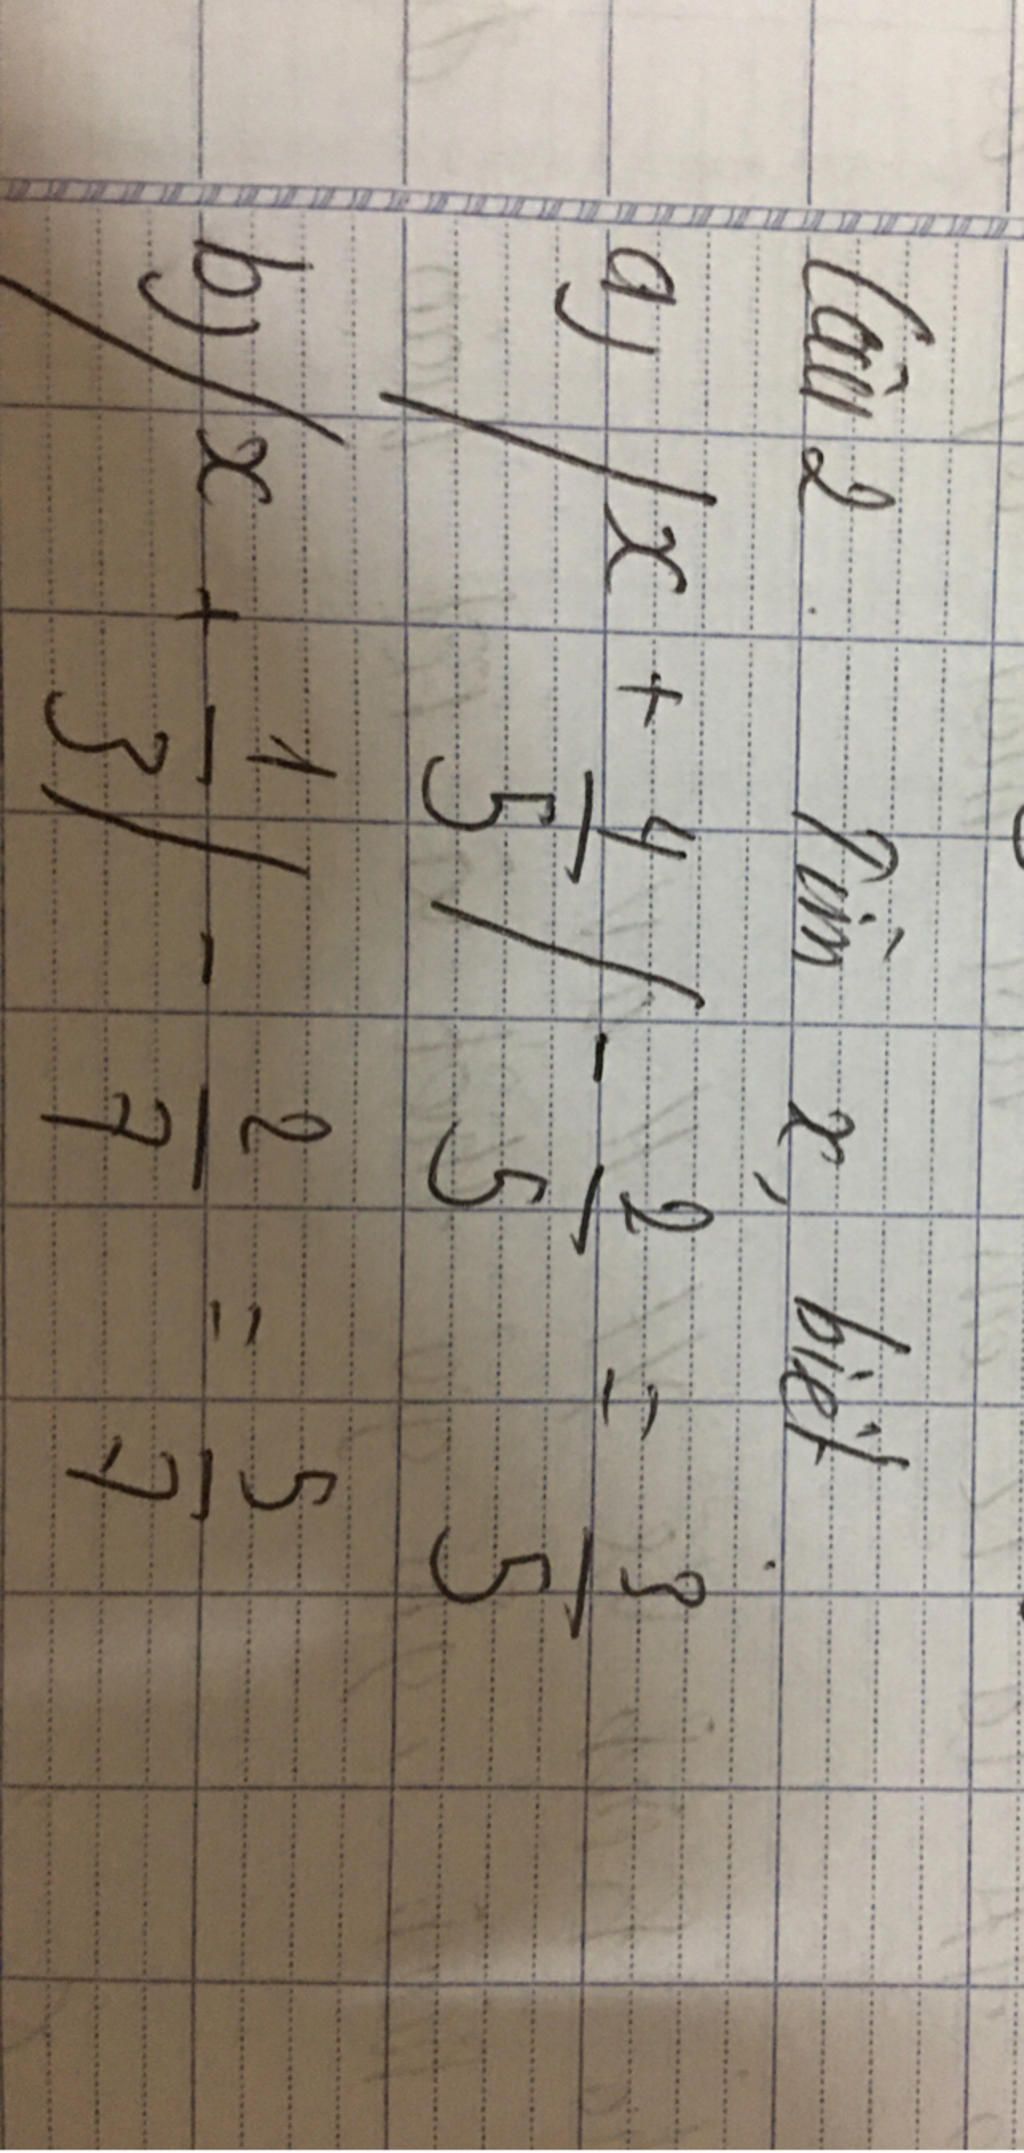 Câu 2. Tìm x, biết
a) |x + 4/5| - 2/5 = 3/5
b) |x + 1/3| - 2/7 = 5/7